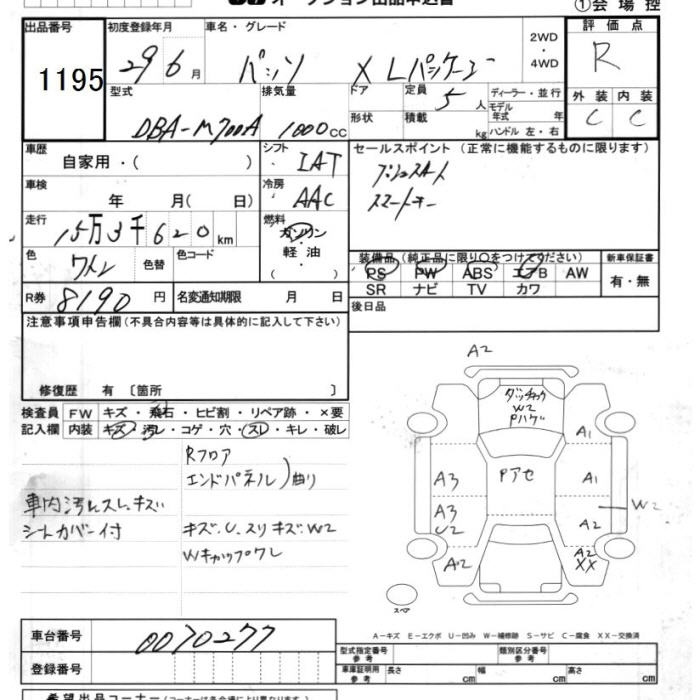 オークション出品申込書
①会場控
出品番号 初度登録年月 車名・グレード 2WD・4WD 評価点
1195 29 6月 パッソ X Lパッケージ R
型式 排気量 ドア 定員 ディーラー・並行 外装 内装
DBA-M700A 1000cc 5人 モデル年式 年 C C
形状 積載 kg ハンドル 左・右
車歴 シフト セールスポイント (正常に機能するものに限ります)
自家用・( ) IAT プッシュスタート
車検 冷房 スマートキー
年 月( 日) AAC
走行 燃料
15万3千620km ガソリン・軽油
( )
色 色替 色コード 装備品 (純正品に限り○をつけてください) 新車保証書
ワイン PS PW ABS エアB AW 有・無
SR ナビ TV カワ
R券 8190円 名変通知期限 月 日 後日品
注意事項申告欄 (不具合内容等は具体的に記入して下さい)
修復歴 有 〔箇所 〕
検査員記入欄 FW キズ・飛石・ヒビ割・リペア跡・×要
内装 キズ・汚レ・コゲ・穴・スレ・キレ・破レ
Rフロア
エンドパネル)曲り
車内汚レスレ、キズ
シートカバー付
キズ、U、スリキズ、W2
Wキャップワレ
A2
ダッチャク
W2
Pハゲ
A1
A3 Pアセ A1
W2
A3 A2
U2
A2 A2
XX
スペア
A−キズ E−エクボ U−凹み W−補修跡 S−サビ C−腐食 XX−交換済
車台番号 0070277
型式指定番号 参考 類別区分番号 参考
登録番号 車庫証明用 参考 長さ cm 幅 cm 高さ cm
希望出品コーナー